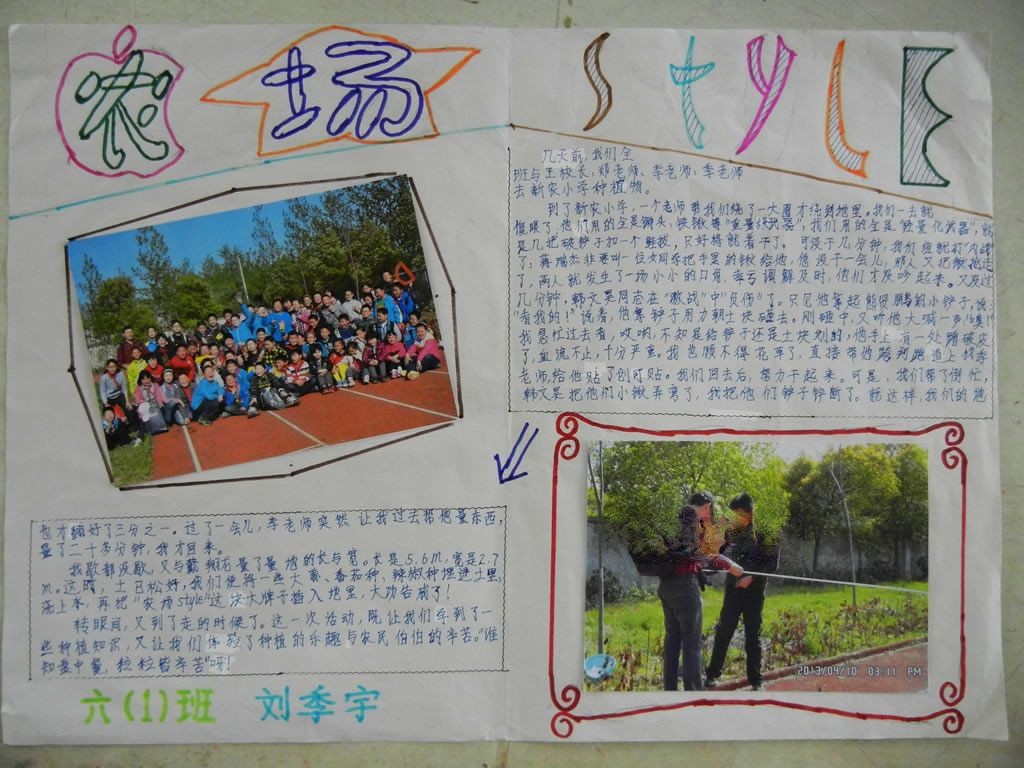 农场 style
几天前,我们全
班与王校长、郑老师、李老师、李老师
去新农小学种植物。
到了新农小学,一个老师带我们绕了一大圈才绕到地里。我们一去就
傻眼了,他们用的全是锄头、铁锹等“重量级武器”,我们用的全是“轻量化武器”,就
是几把破铲子加一个鞋拔,只好将就着干了。可没干几分钟,我们组就打“内战”
了:蒋瑞杰非要叫一位女同学把手里的锹给他,他没干一会儿,那人又把锹抢走
了,两人就发生了一场小小的口角,幸亏调解及时,他们才没吵起来。又没过
几分钟,韩文是同志在“激战”中“负伤”了。只见他拿起能
“看我的!”说着,他拿铲子用力朝土块砸去。刚砸中,又听他大喊一声:“噢!”
我急忙过去看,哎哟,不知是给铲子还是土块划的,他手上有一处蹭破皮
了,血流不止,十分严重。我也顾不得花草了,直接带他跨到跑道上找李
老师,给他贴了创可贴。我们回去后,努力干起来。可是,我们帮了倒忙,
韩文是把他们小锹弄弯了,我把他们铲子铲断了。就这样,我们的地
也才翻好了三分之一。过了一会儿,李老师突然让我过去帮他量东西,
量了二十多分钟,我才回来。
我歇都没歇,又与戴翔龙量了量地的长与宽。长是5.6m,宽是2.7
m。这时,土已松好,我们便将一些大蒜、番茄种、辣椒种埋进土里,
浇上水,再把“农场style”这块大牌子插入地里,大功告成了!
转眼间,又到了走的时候了。这一次活动,既让我们学到了一
些种植知识,又让我们体验了种植的乐趣与农民伯伯的辛苦。“谁
知盘中餐,粒粒皆辛苦”呀!
六(1)班 刘季宇
2013/04/10 03:11 PM